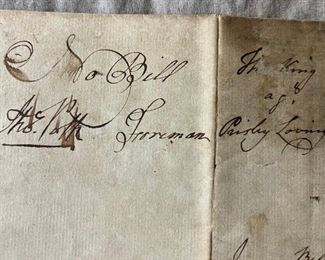 No Bill
Thos. Polk Foreman
The King
agt.
Prisley Loving